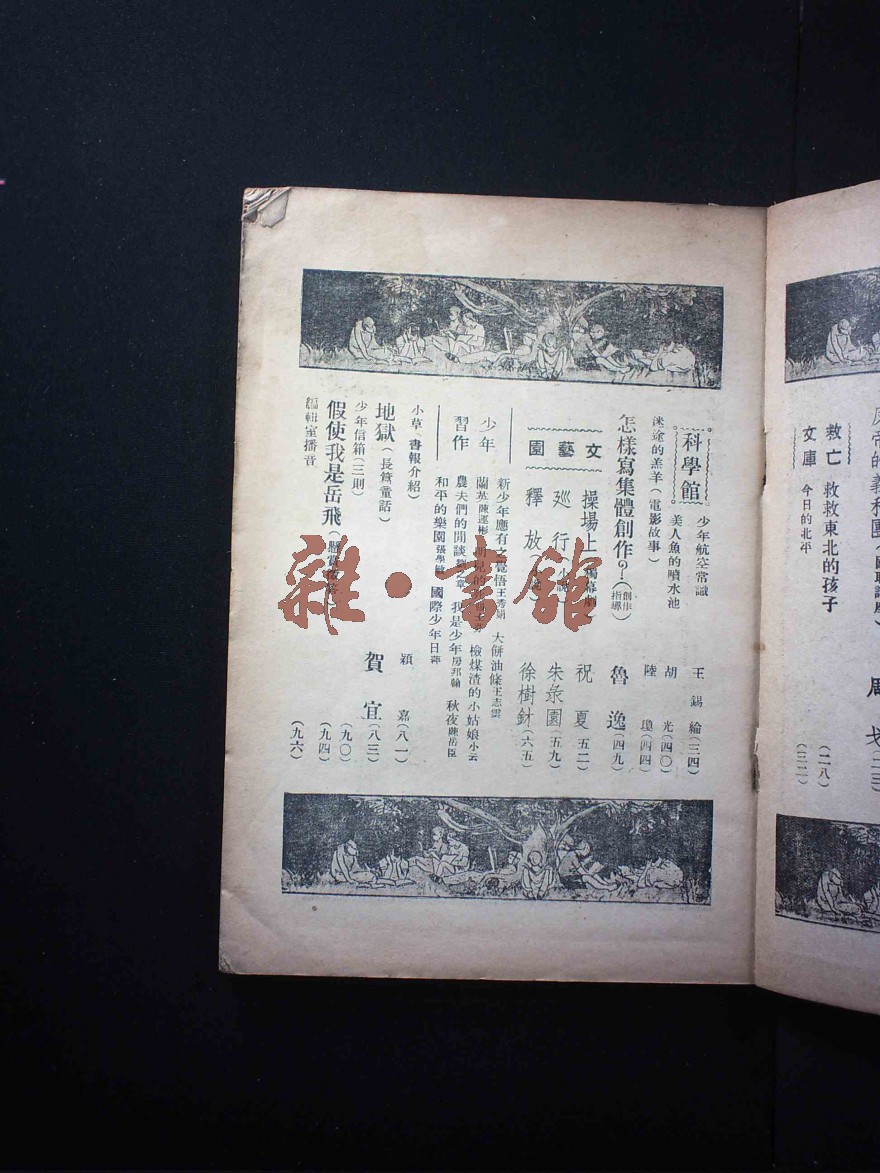 救亡文庫
救救東北的孩子
(二八)
今日的北平
(三二)
科學館
少年航空常識 王錫綸(三四)
美人魚的噴水池 胡光(四〇)
迷途的羔羊(電影故事) 陸瓊(四四)
怎樣寫集體創作?(創作指導) 魯逸(四九)
文藝園
操場上(獨幕劇) 祝夏(五二)
巡行(小說) 朱彔園(五九)
釋放 徐樹針(六五)
少年習作
新少年應有之覺悟王秀娟 大餅油條王志雲
蘭英陳運彬 檢煤渣的小姑娘小云
農夫們的閒談 我是少年房邦翰 秋夜陳岳臣
和平的樂園 國際少年日
小草(書報介紹) 穎嘉(八一)
地獄(長篇童話) 賀宜(八三)
少年信箱(三則) (九〇)
假使我是岳飛(懸賞徵答) (九四)
編輯室播音 (九六)
雜·書館